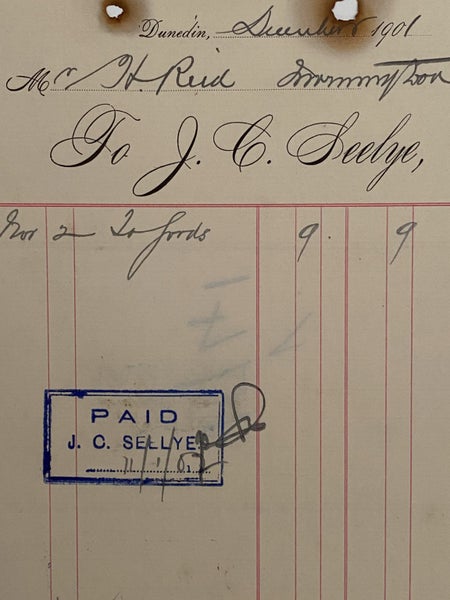 Dunedin, December 6 1901
Mr H. Reid Mornington
To J. C. Seelye,
Nov 2 To goods 9 . 9
PAID
J. C. SELLYE
11/1/02